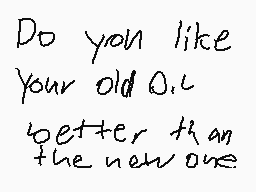 Do you like
Your old O.C
better than
the new one